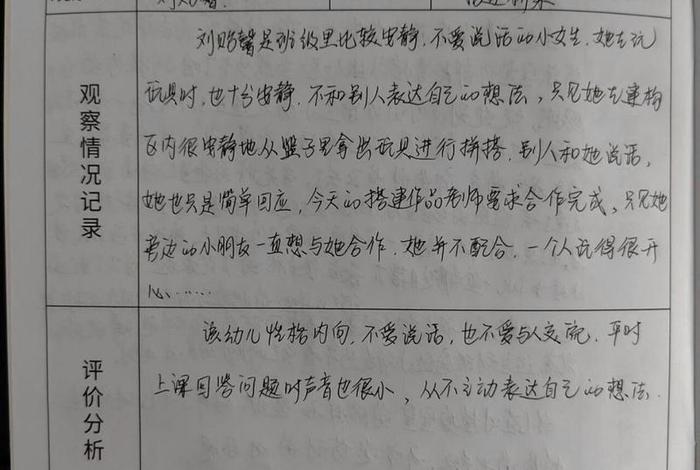 观察情况记录
刘贻馨是班级里比较安静,不爱说话的小女生.她在玩
玩具时,也十分安静.不和别人表达自己的想法,只见她在建构
区内很安静地从篮子里拿出玩具进行拼搭.别人和她说话,
她也只是简单回应,今天的搭建作品老师要求合作完成,只见她
旁边的小朋友一直想与她合作.她并不配合.一个人玩得很开
心……
评价分析
该幼儿性格内向,不爱说话,也不爱与人交流.平时
上课回答问题时声音也很小,从不主动表达自己的想法.